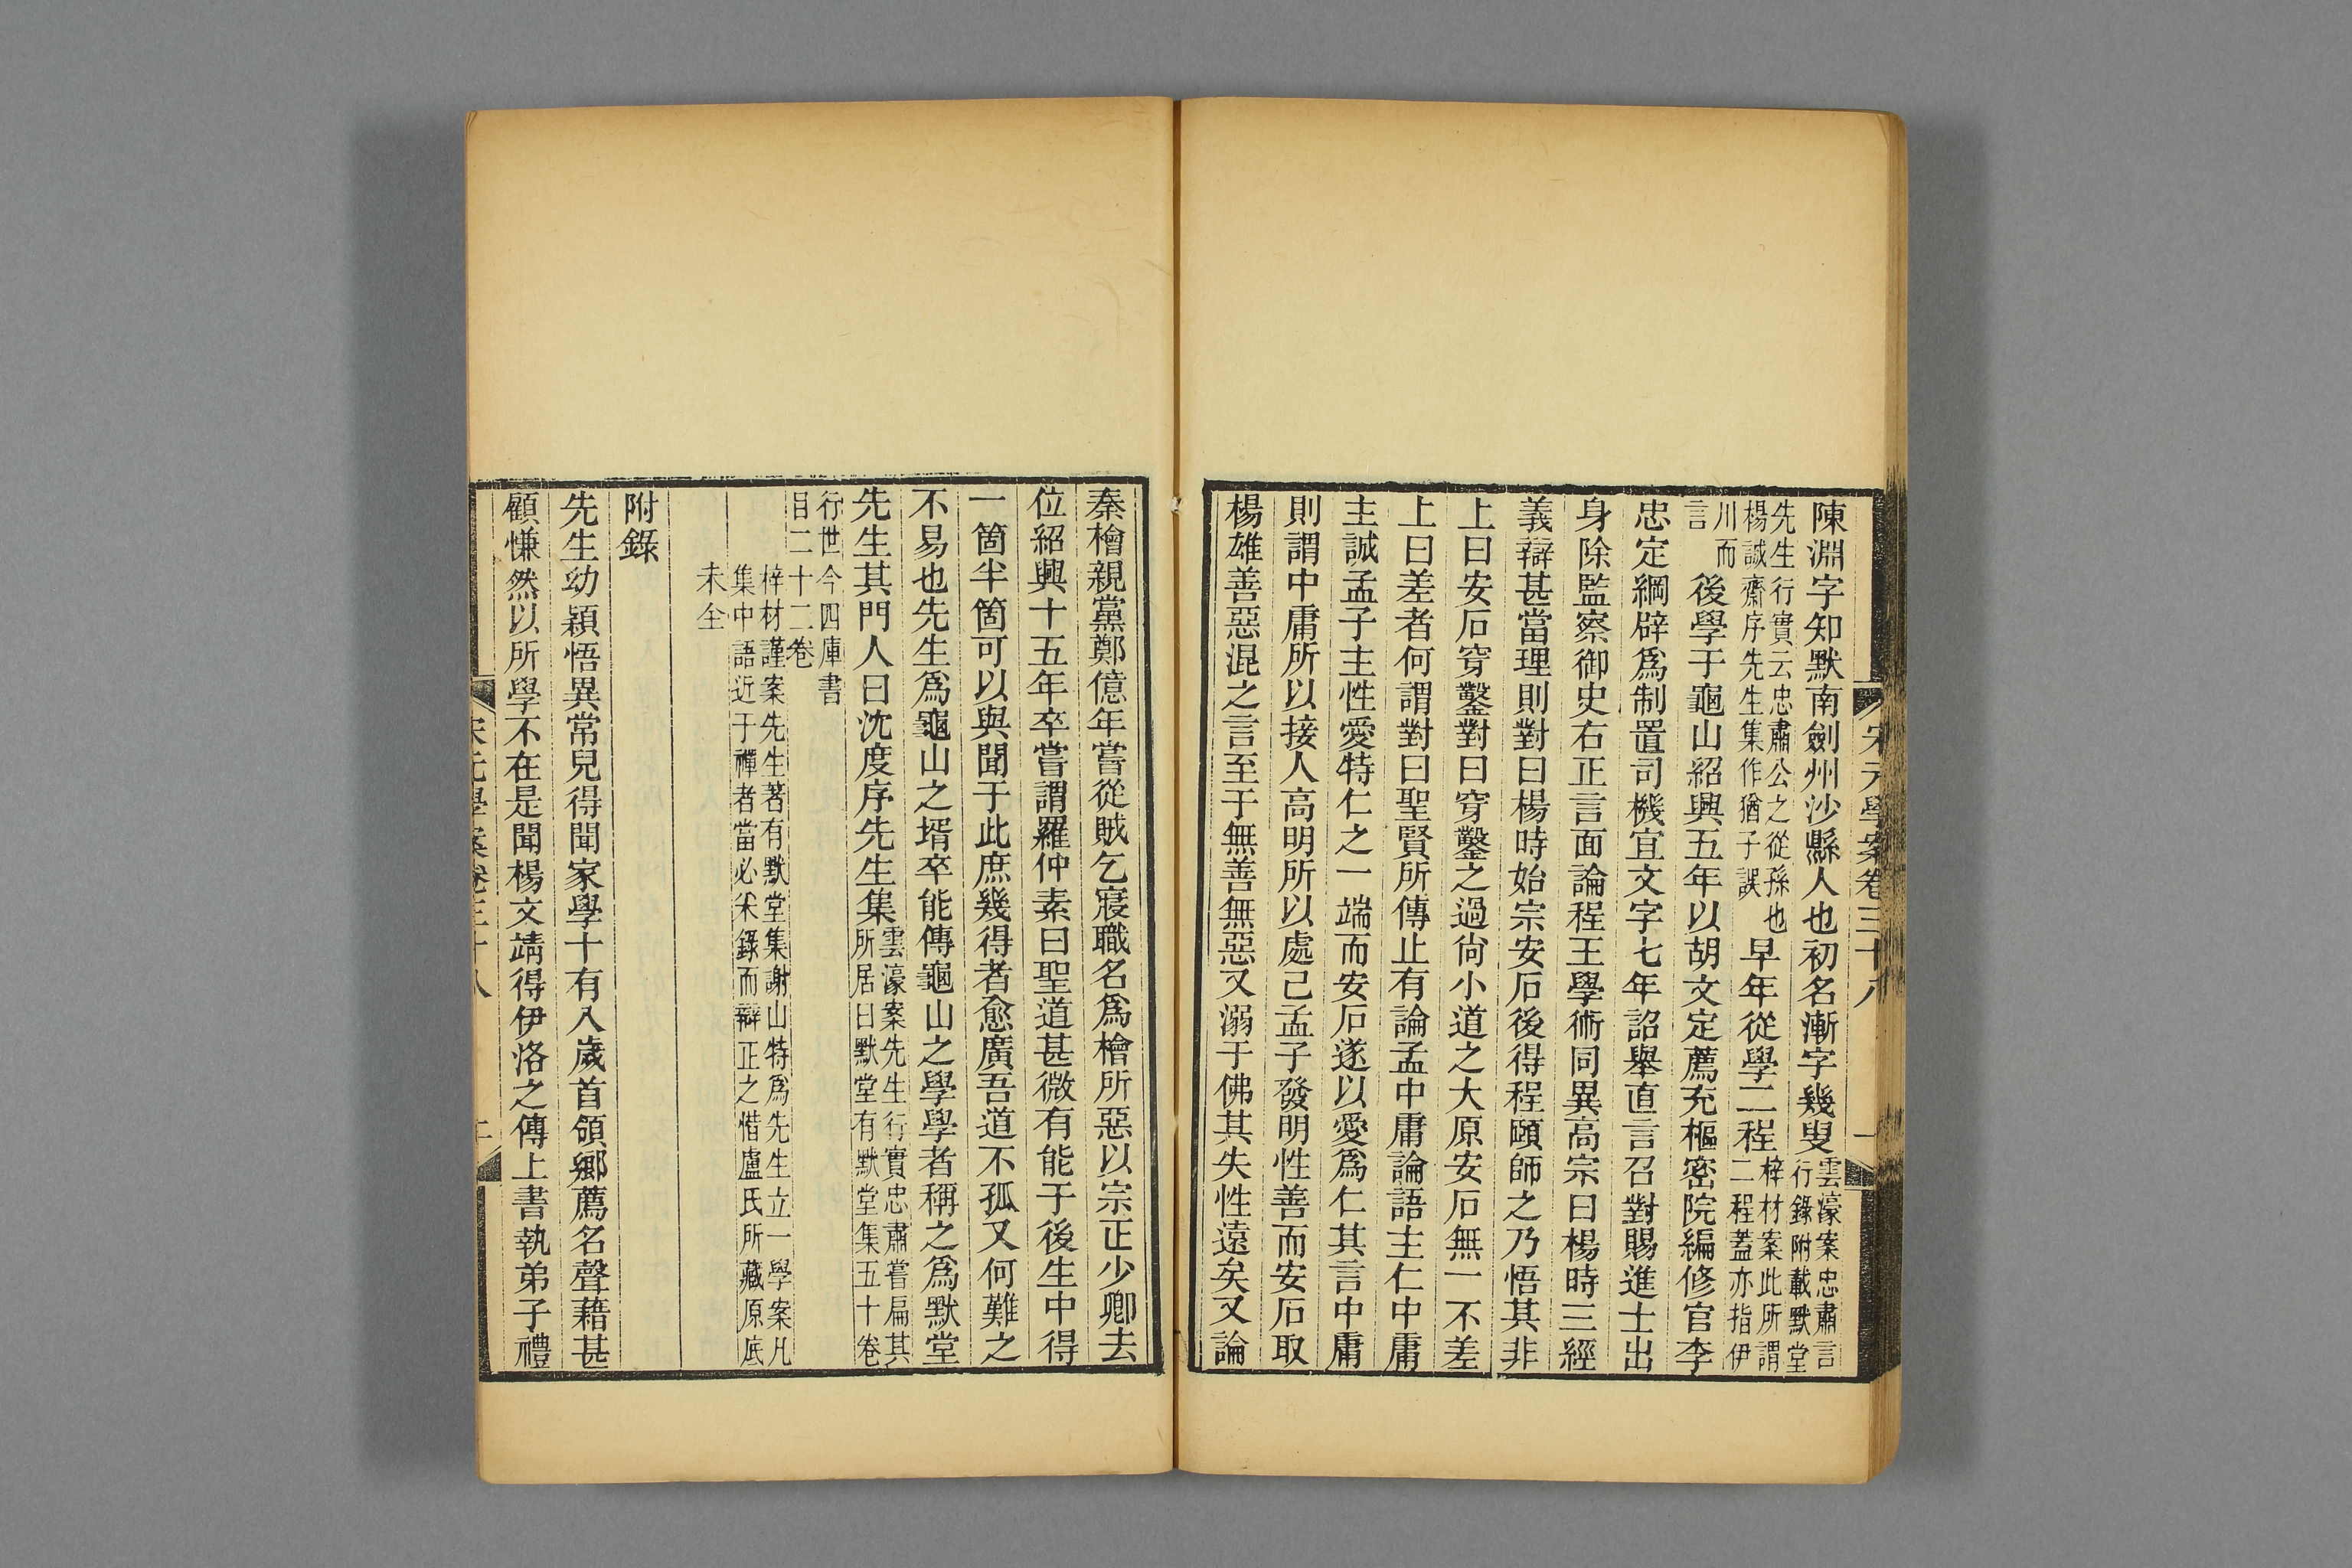 宋元學案卷三十八 一
陳淵字知默南劍州沙縣人也初名漸字幾叟雲濠案忠肅言
行錄附載默堂
先生行實云忠肅公之從孫也
楊誠齋序先生集作猶子誤早年從學二程梓材案此所謂
二程蓋亦指伊
川而
言後學于龜山紹興五年以胡文定薦充樞密院編修官李
忠定綱辟爲制置司機宜文字七年詔舉直言召對賜進士出
身除監察御史右正言面論程王學術同異高宗曰楊時三經
義辯甚當理則對曰楊時始宗安石後得程頤師之乃悟其非
上曰安石穿鑿對曰穿鑿之過尙小道之大原安石無一不差
上曰差者何謂對曰聖賢所傳止有論孟中庸論語主仁中庸
主誠孟子主性愛特仁之一端而安石遂以愛爲仁其言中庸
則謂中庸所以接人高明所以處己孟子發明性善而安石取
楊雄善惡混之言至于無善無惡又溺于佛其失性遠矣又論
秦檜親黨鄭億年嘗從賊乞寢職名爲檜所惡以宗正少卿去
位紹興十五年卒嘗謂羅仲素曰聖道甚微有能于後生中得
一箇半箇可以與聞于此庶幾得者愈廣吾道不孤又何難之
不易也先生爲龜山之壻卒能傳龜山之學學者稱之爲默堂
先生其門人曰沈度序先生集雲濠案先生行實忠肅嘗扁其
所居曰默堂有默堂集五十卷
行世今四庫書
目二十二卷
梓材謹案先生著有默堂集謝山特爲先生立一學案凡
集中語近于禪者當必采錄而辯正之惜盧氏所藏原底
未全
附錄
先生幼穎悟異常兒得聞家學十有八歲首領鄉薦名聲藉甚
顧慊然以所學不在是聞楊文靖得伊洛之傳上書執弟子禮
宋元學案卷三十八